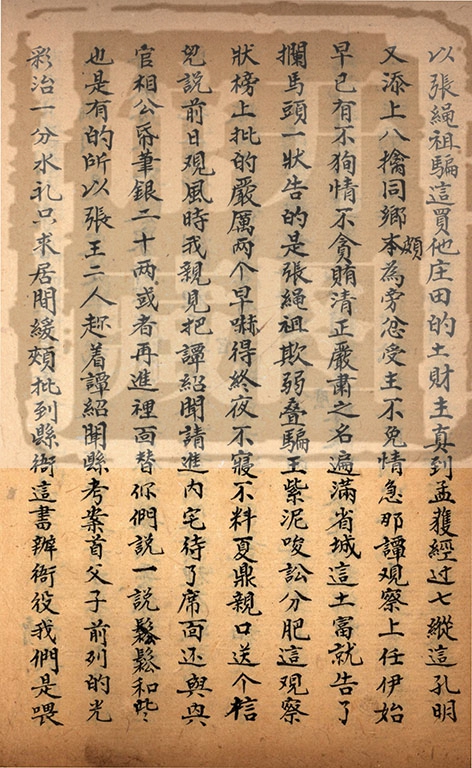 以張繩祖騙這買他庄田的土財主真到孟獲經过七縱這孔明
又添上八擒同鄉本頗為旁忿受主不免情急那譚观察上任伊始
早已有不狥情不貪賄清正嚴肅之名遍滿省城這土富就告了
攔馬頭一狀告的是張繩祖欺弱疊騙王紫泥唆訟分肥這观察
狀榜上批的嚴厲两个早嚇得終夜不寢不料夏鼎親口送个信
兒説前日观風時我親見把譚紹聞請進内宅待了席面还與興
官相公帋筆銀二十两或者再進裡面替你們説一説鬆鬆和些
也是有的所以張王二人趂着譚紹聞縣考案首父子前列的光
彩治一分水礼只求居間緩頰批到縣衙這書辦衙役我們是喂